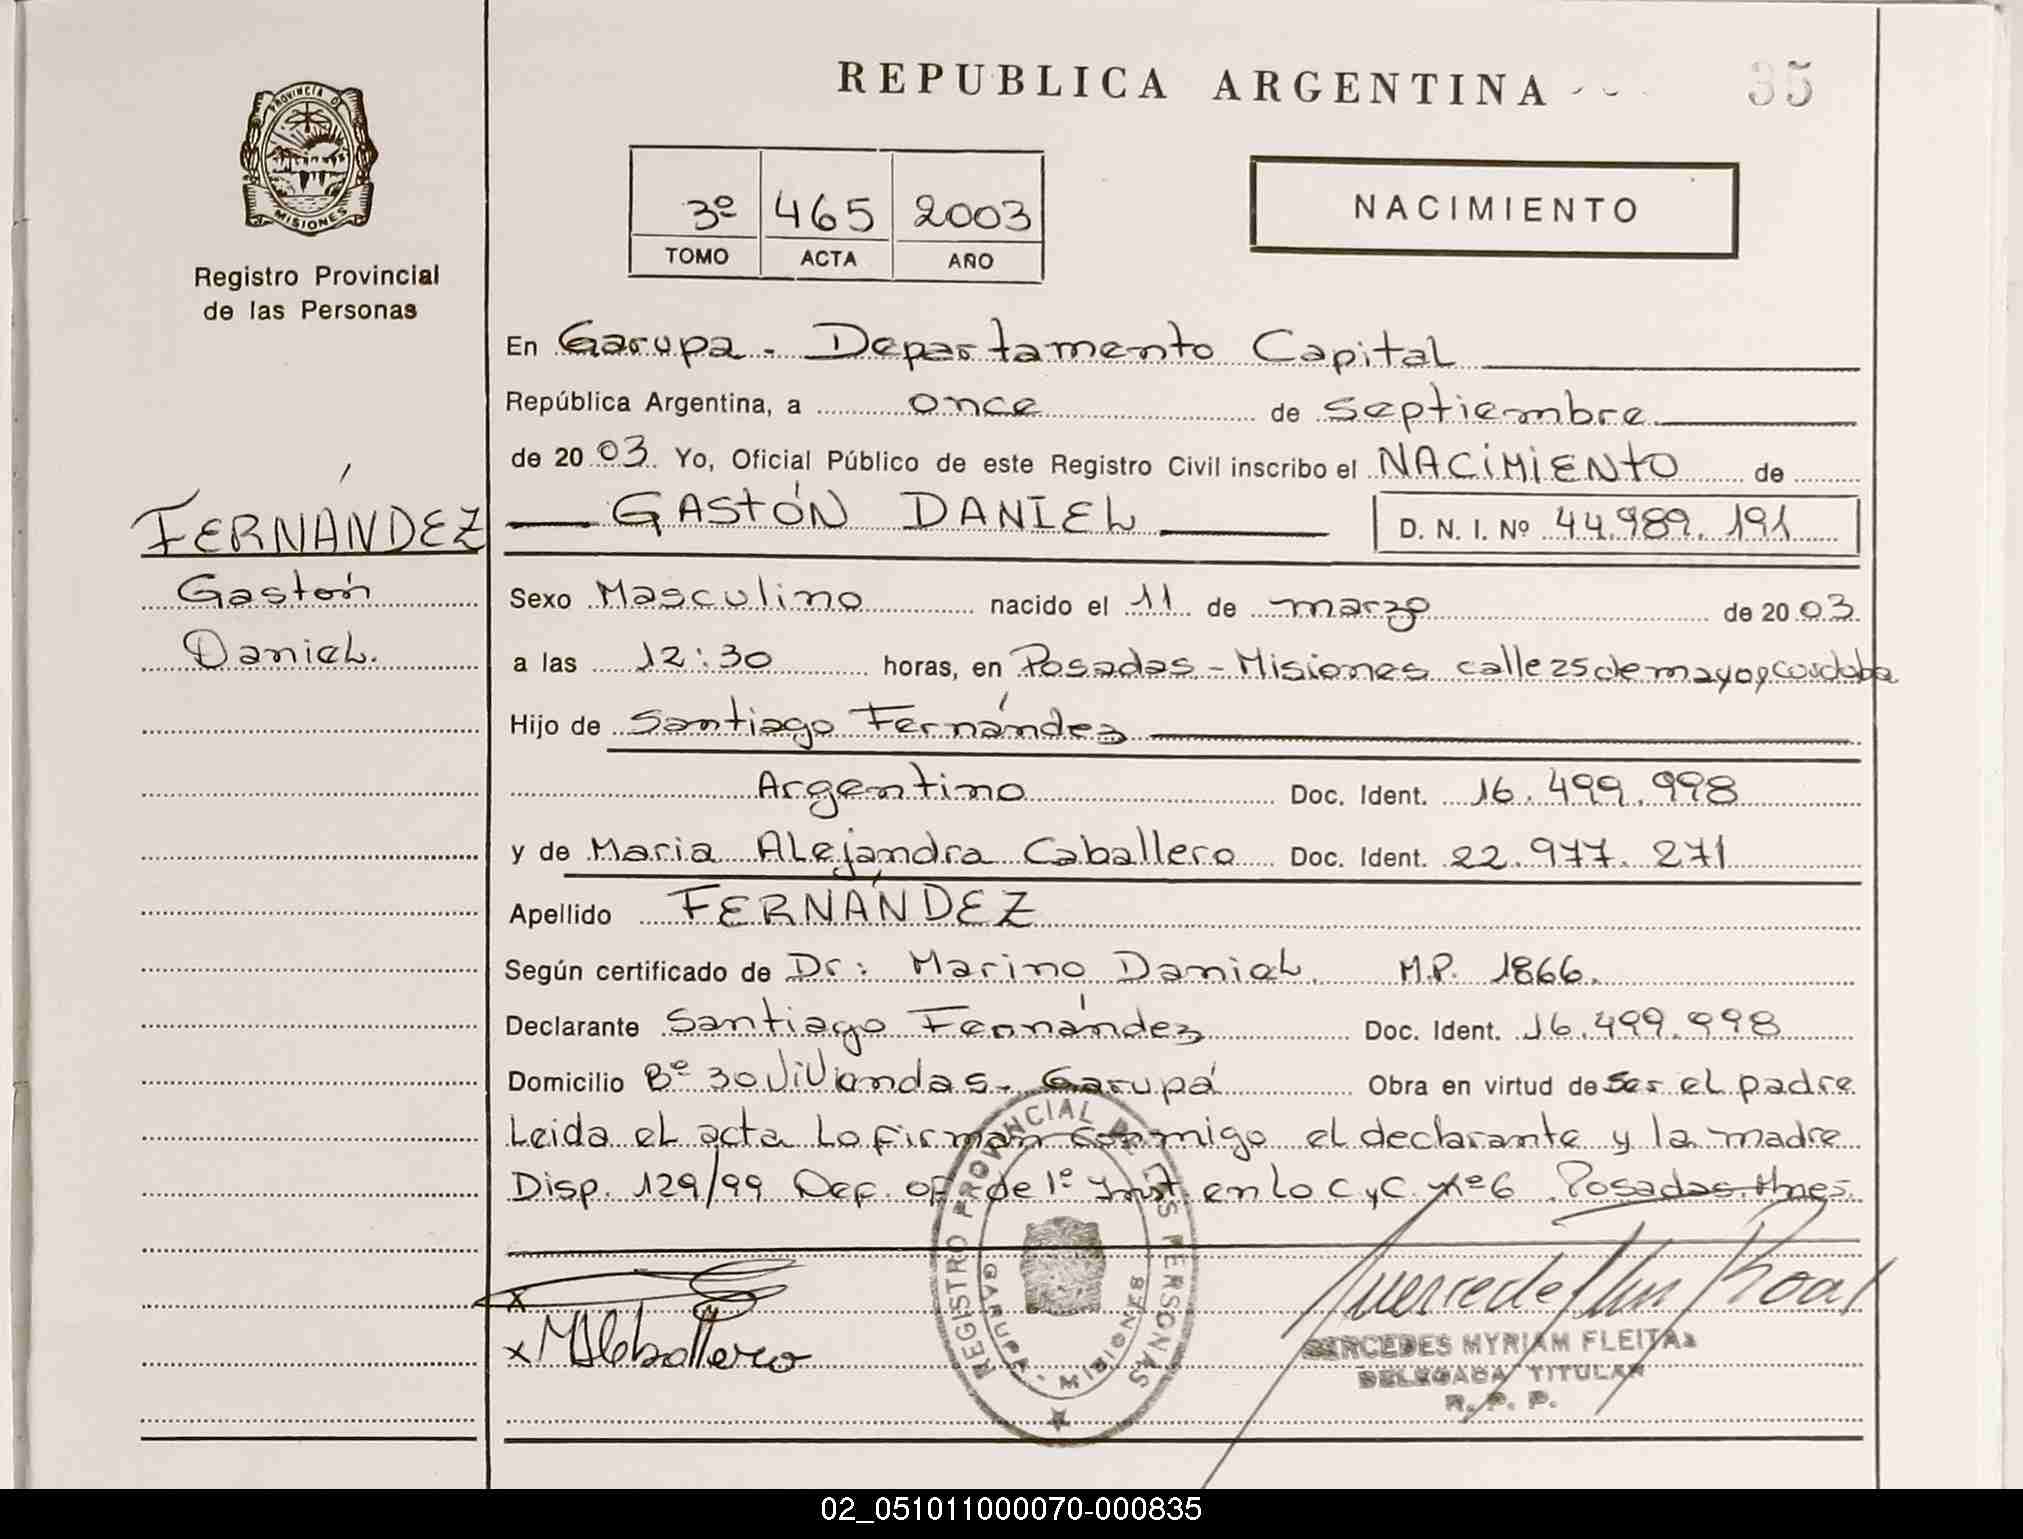 REPUBLICA ARGENTINA
35
PROVINCIA DE
MISIONES
Registro Provincial
de las Personas
3º 465 2003
TOMO ACTA AÑO
NACIMIENTO
En Garupa - Departamento Capital
República Argentina, a once de septiembre
de 2003. Yo, Oficial Público de este Registro Civil inscribo el NACIMIENTO de
FERNÁNDEZ
Gastón
Daniel.
GASTÓN DANIEL D. N. I. Nº 44.989.191
Sexo Masculino nacido el 11 de marzo de 2003.
a las 12:30 horas, en Posadas - Misiones calle 25 de mayo y cordoba
Hijo de Santiago Fernández
Argentino Doc. Ident. 16.499.998
y de Maria Alejandra Caballero Doc. Ident. 22.977.271
Apellido FERNÁNDEZ
Según certificado de Dr: Marino Daniel. M.P. 1866.
Declarante Santiago Fernández Doc. Ident. 16.499.998
Domicilio Bº 30 Viviendas - Garupá Obra en virtud de ser el padre
Leida el acta lo firman conmigo el declarante y la madre
Disp. 129/99 Def. of. de 1º Inst. en lo C y C. Nº 6 Posadas. Mnes.
REGISTRO PROVINCIAL DE LAS PERSONAS
GARUPA - MISIONES
x
x MACaballero
MERCEDES MYRIAM FLEITAS
DELEGADA TITULAR
R. P. P.
02_051011000070-000835